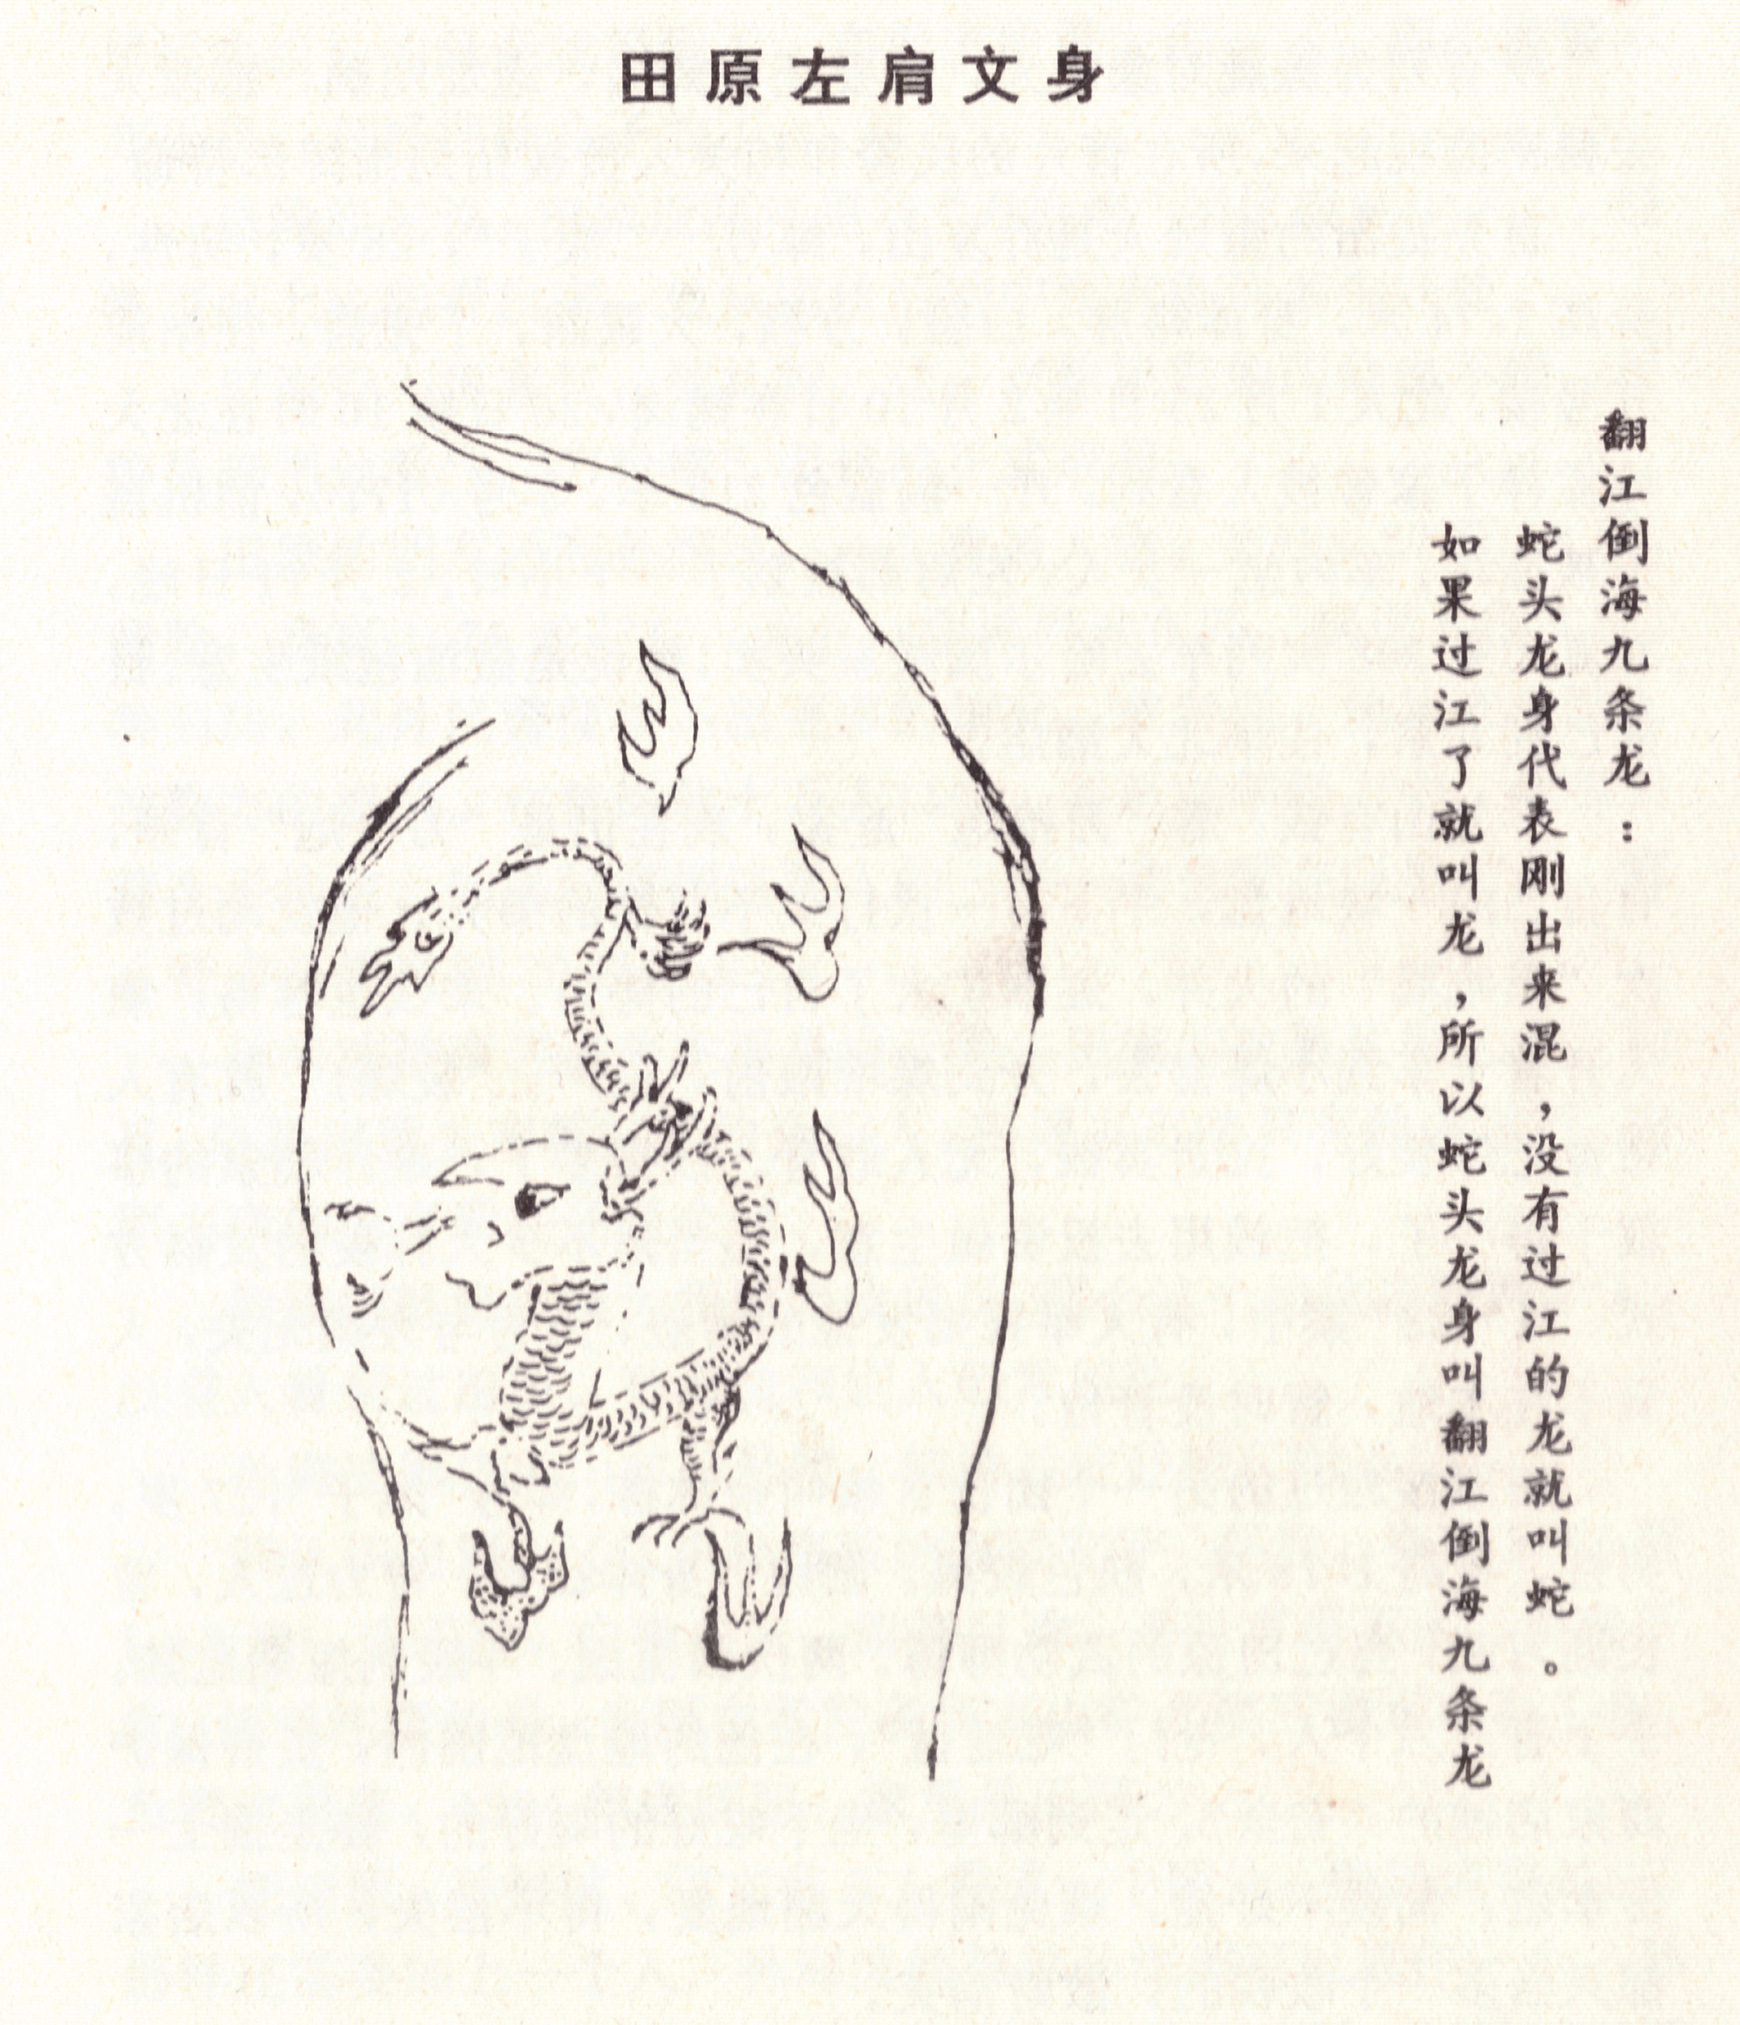 田原左肩文身
翻江倒海九条龙：
蛇头龙身代表刚出来混，没有过江的龙就叫蛇。
如果过江了就叫龙，所以蛇头龙身叫翻江倒海九条龙